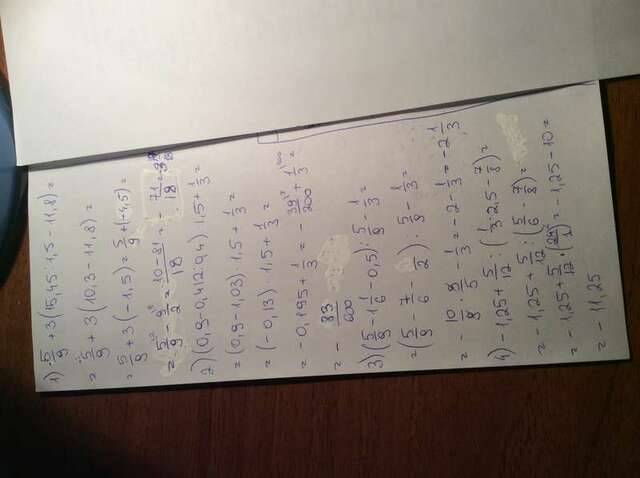 1) 5/9 + 3(15,45:1,5 - 11,8) =
= 5/9 + 3(10,3 - 11,8) =
= 5/9 + 3(-1,5) = 5/9 + (-4,5) =
= 5/9 - 9/2 = 10-81/18 = - 71/18 =
2) (0,9 - 0,412:0,4)·1,5 + 1/3 =
= (0,9 - 1,03)·1,5 + 1/3 =
= (-0,13)·1,5 + 1/3 =
= -0,195 + 1/3 = - 39/200 + 1/3 =
= - 83/600
3) (5/9 - 1 1/6 - 0,5) : 5/9 - 1/3 =
= (5/9 - 7/6 - 1/2) : 5/9 - 1/3 =
= - 10/9 · 9/5 - 1/3 = -2 - 1/3 = -2 1/3
4) -1,25 + 5/12 : (1/3 : 2,5 - 7/8) =
= -1,25 + 5/12 : (5/6 - 7/8) =
= -1,25 + 5/12 · (- 24/1) = -1,25 - 10 =
= -11,25